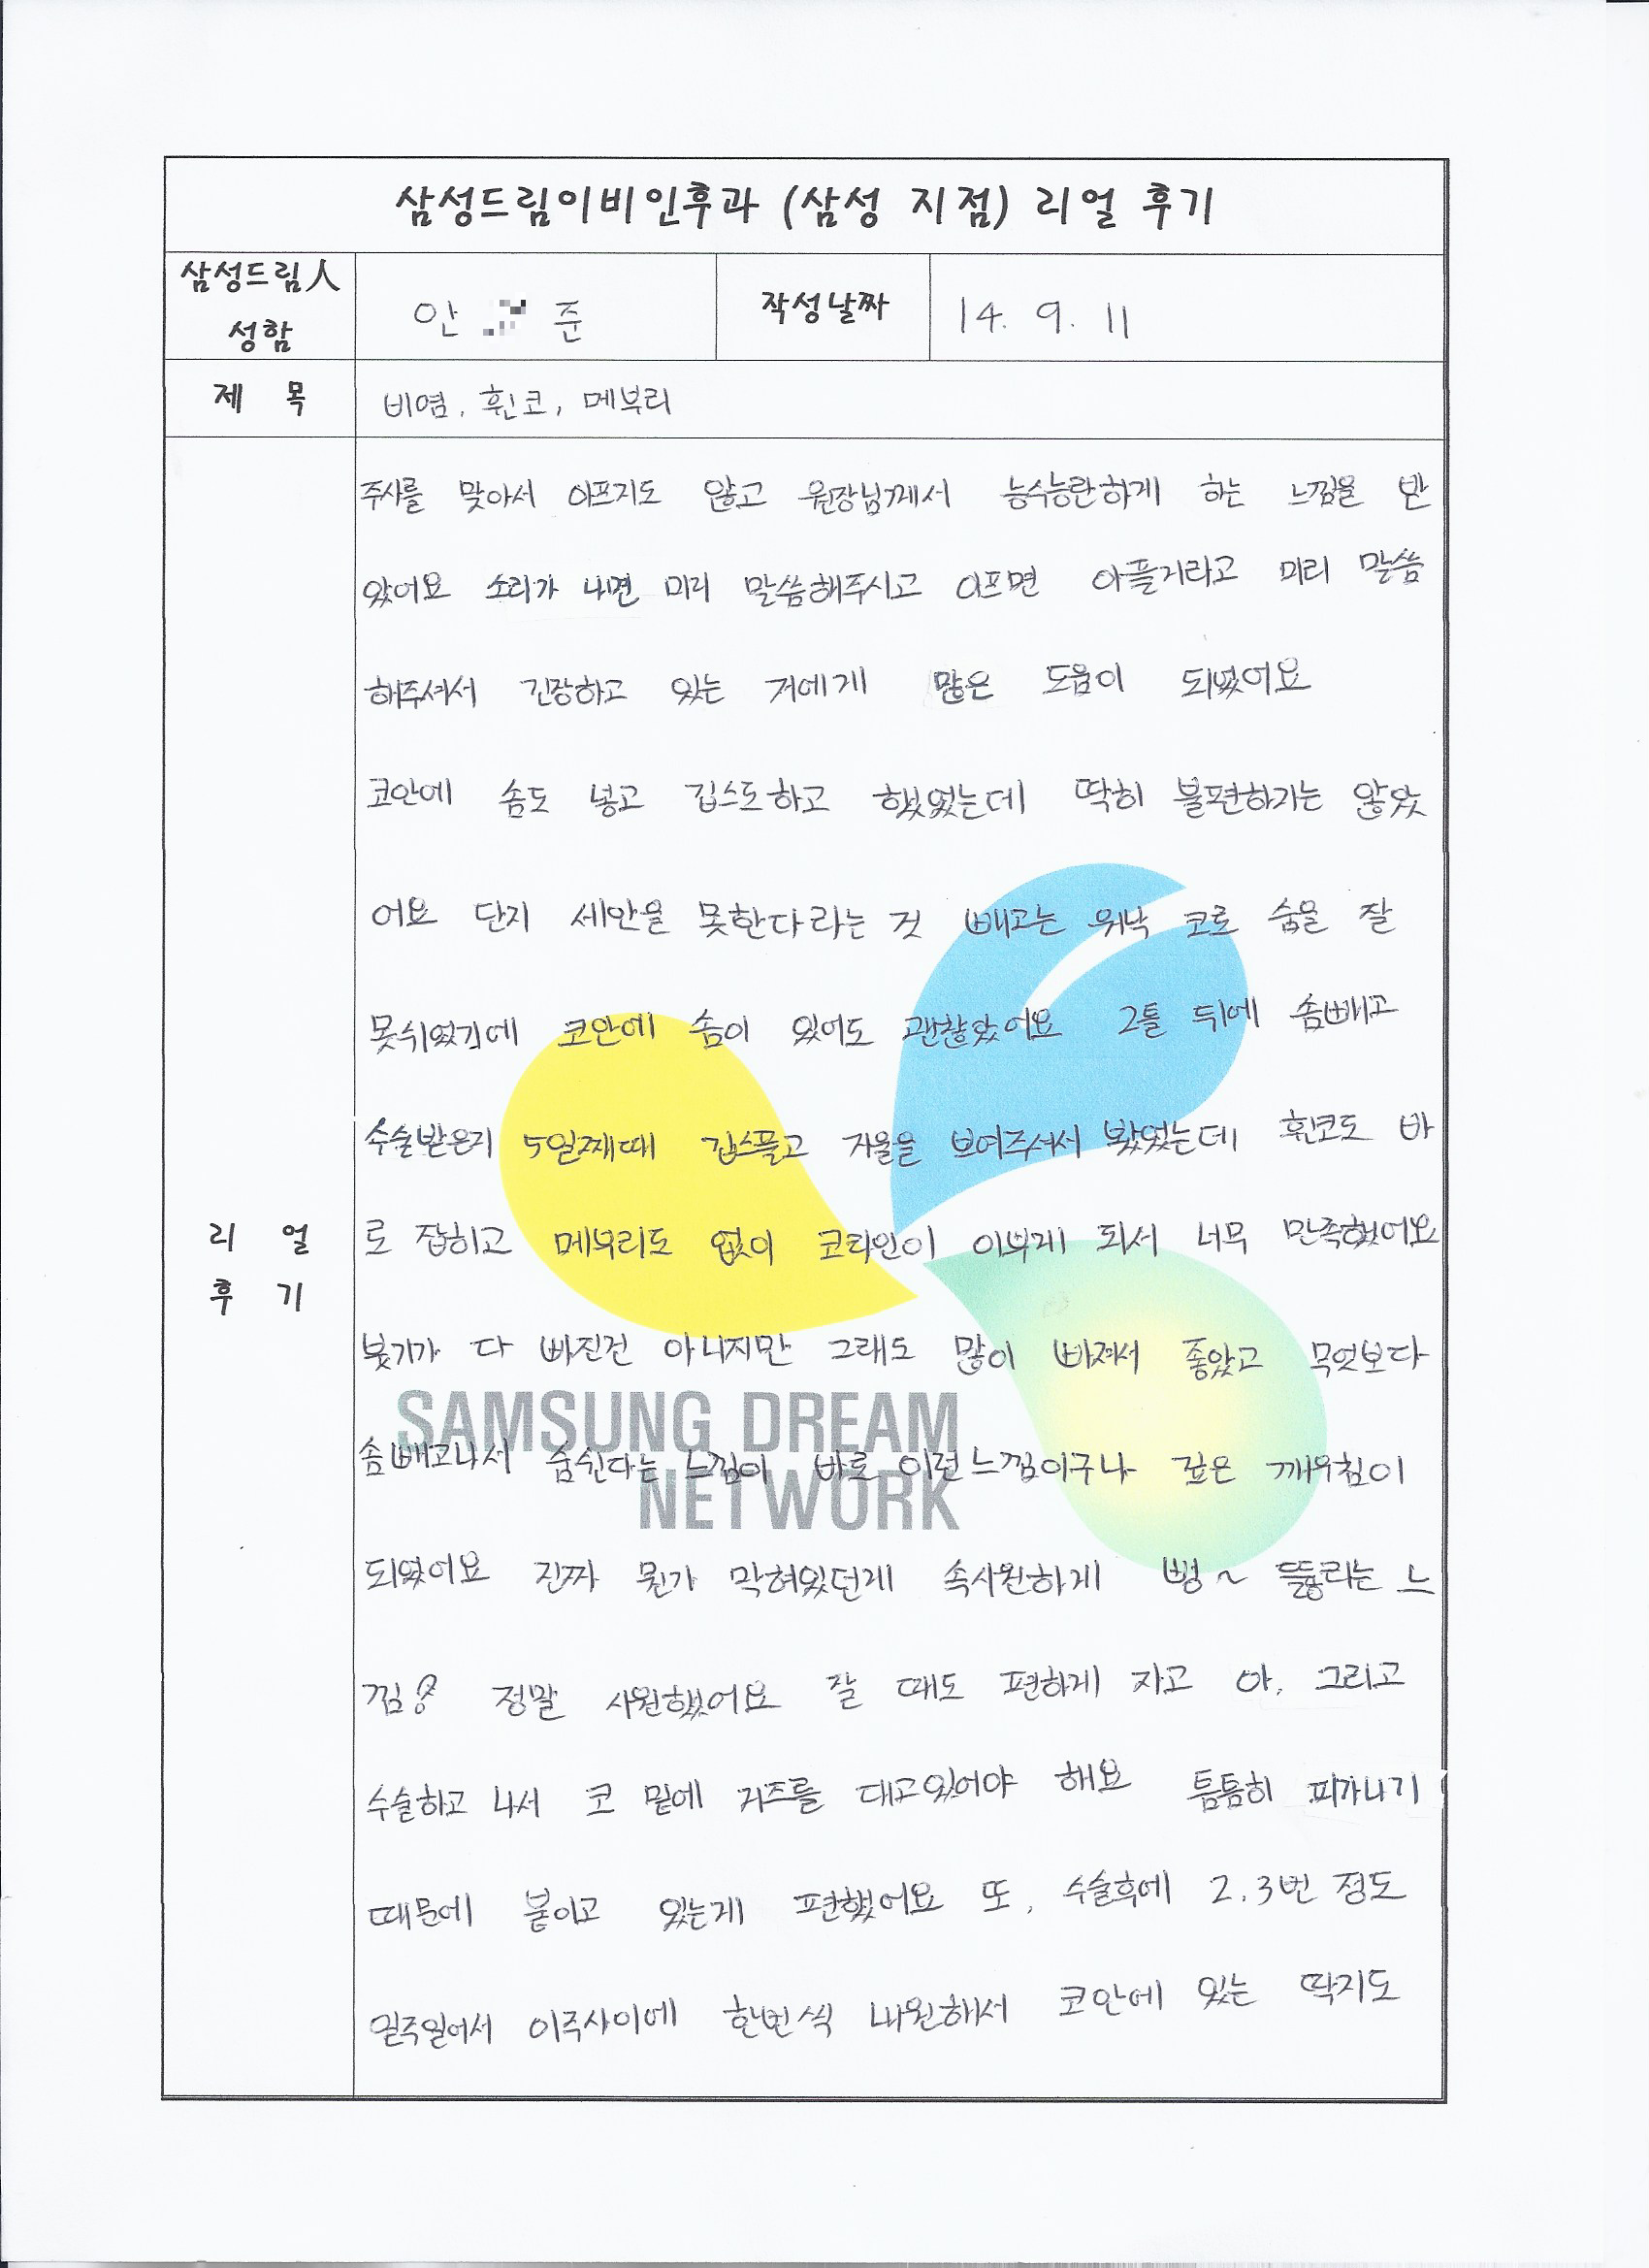 삼성드림이비인후과 (삼성 지점) 리얼 후기
삼성드림人
성함
안 준
작성날짜
14. 9. 11
제 목
비염, 휜코, 메부리
리 얼
후 기
주사를 맞아서 아프지도 않고 원장님께서 능수능란하게 하는 느낌을 받
았어요 소리가 나면 미리 말씀해주시고 아프면 아플거라고 미리 말씀
해주셔서 긴장하고 있는 저에게 많은 도움이 되었어요
코안에 솜도 넣고 깁스도하고 했었는데 딱히 불편하기는 않았
어요 단지 세안을 못한다라는 것 빼고는 워낙 코로 숨을 잘
못쉬였기에 코안에 솜이 있어도 괜찮았어요 2틀 뒤에 솜빼고
수술받은지 5일째때 깁스풀고 거울을 보여주셔서 봤었는데 휜코도 바
로 잡히고 메부리도 없이 코라인이 이쁘게 되서 너무 만족했어요
붓기가 다 빠진건 아니지만 그래도 많이 빠져서 좋았고 무엇보다
솜빼고나서 숨쉰다는 느낌이 바로 이런느낌이구나 깊은 깨우침이
되었어요 진짜 뭔가 막혀있던게 속시원하게 뻥~ 뚫리는 느
낌? 정말 시원했어요 잘 때도 편하게 자고 아, 그리고
수술하고 나서 코 밑에 거즈를 대고있어야 해요 틈틈히 피가나기
때문에 붙이고 있는게 편했어요 또, 수술후에 2,3번 정도
일주일에서 이주사이에 한번씩 내원해서 코안에 있는 딱지도
SAMSUNG DREAM
NETWORK